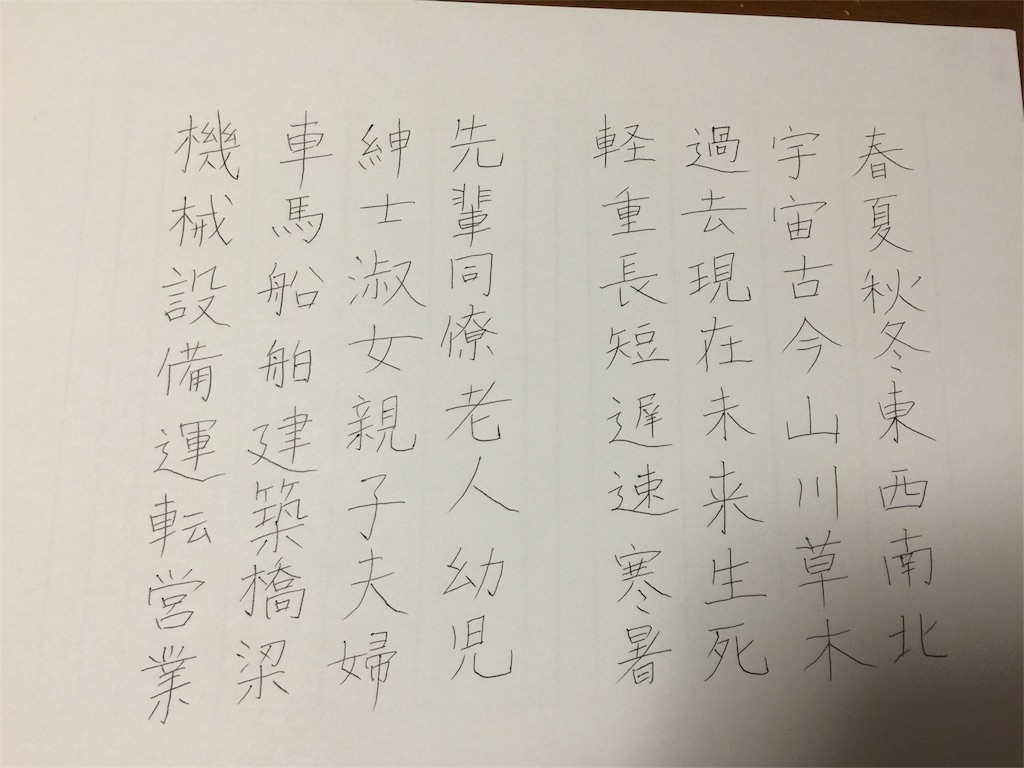 春夏秋冬東西南北
宇宙古今山川草木
過去現在未来生死
軽重長短遅速寒暑
先輩同僚老人幼児
紳士淑女親子夫婦
車馬船舶建築橋梁
機械設備運転営業